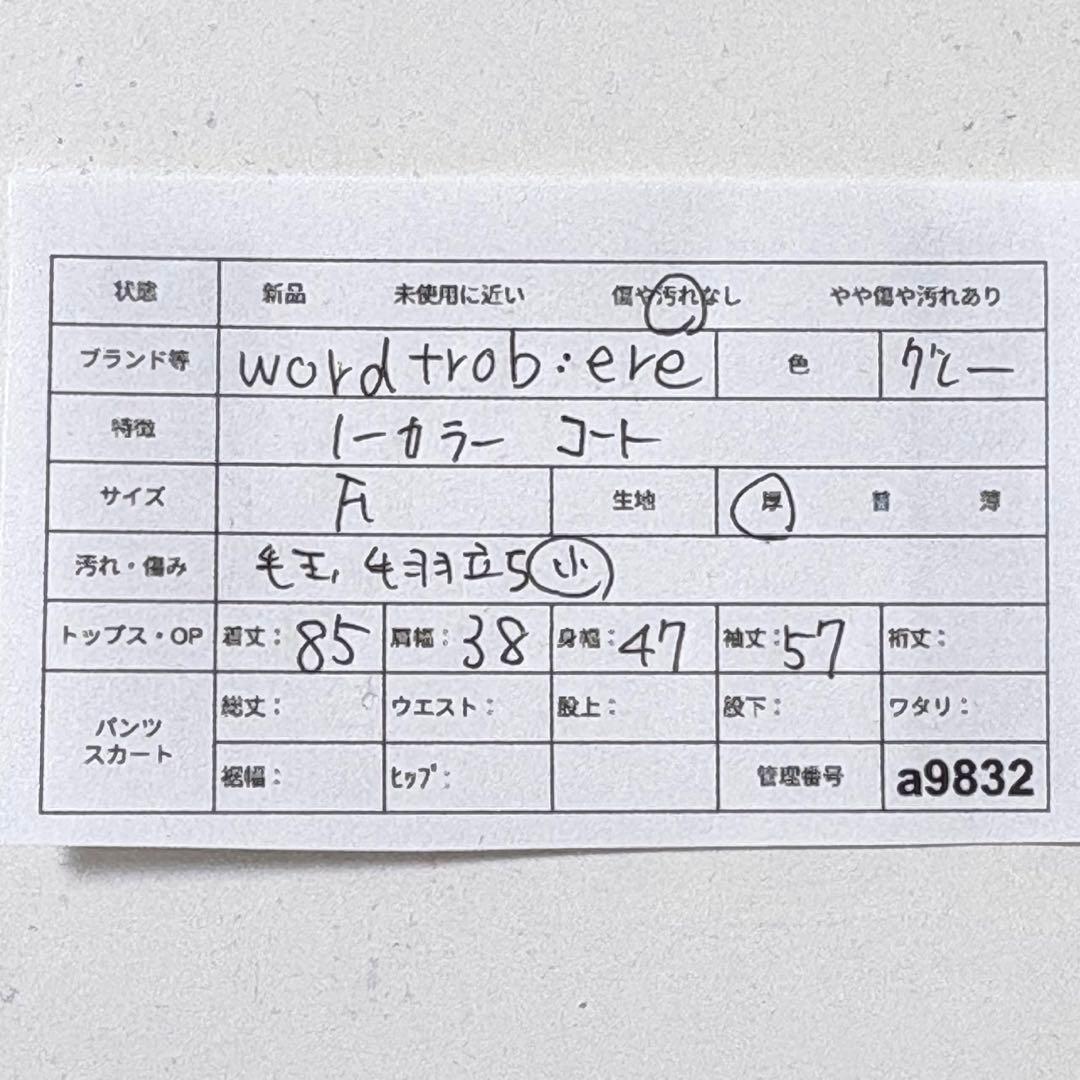 状態 新品 未使用に近い 傷や汚れなし やや傷や汚れあり
ブランド等 word trob:ere 色 グレー
特徴 ノーカラー コート
サイズ F 生地 厚 普 薄
汚れ・傷み 毛玉, 毛羽立ち 小
トップス・OP 着丈: 85 肩幅: 38 身幅: 47 袖丈: 57 裄丈:
パンツ スカート 総丈: ウエスト: 股上: 股下: ワタリ:
裾幅: ヒップ: 管理番号 a9832